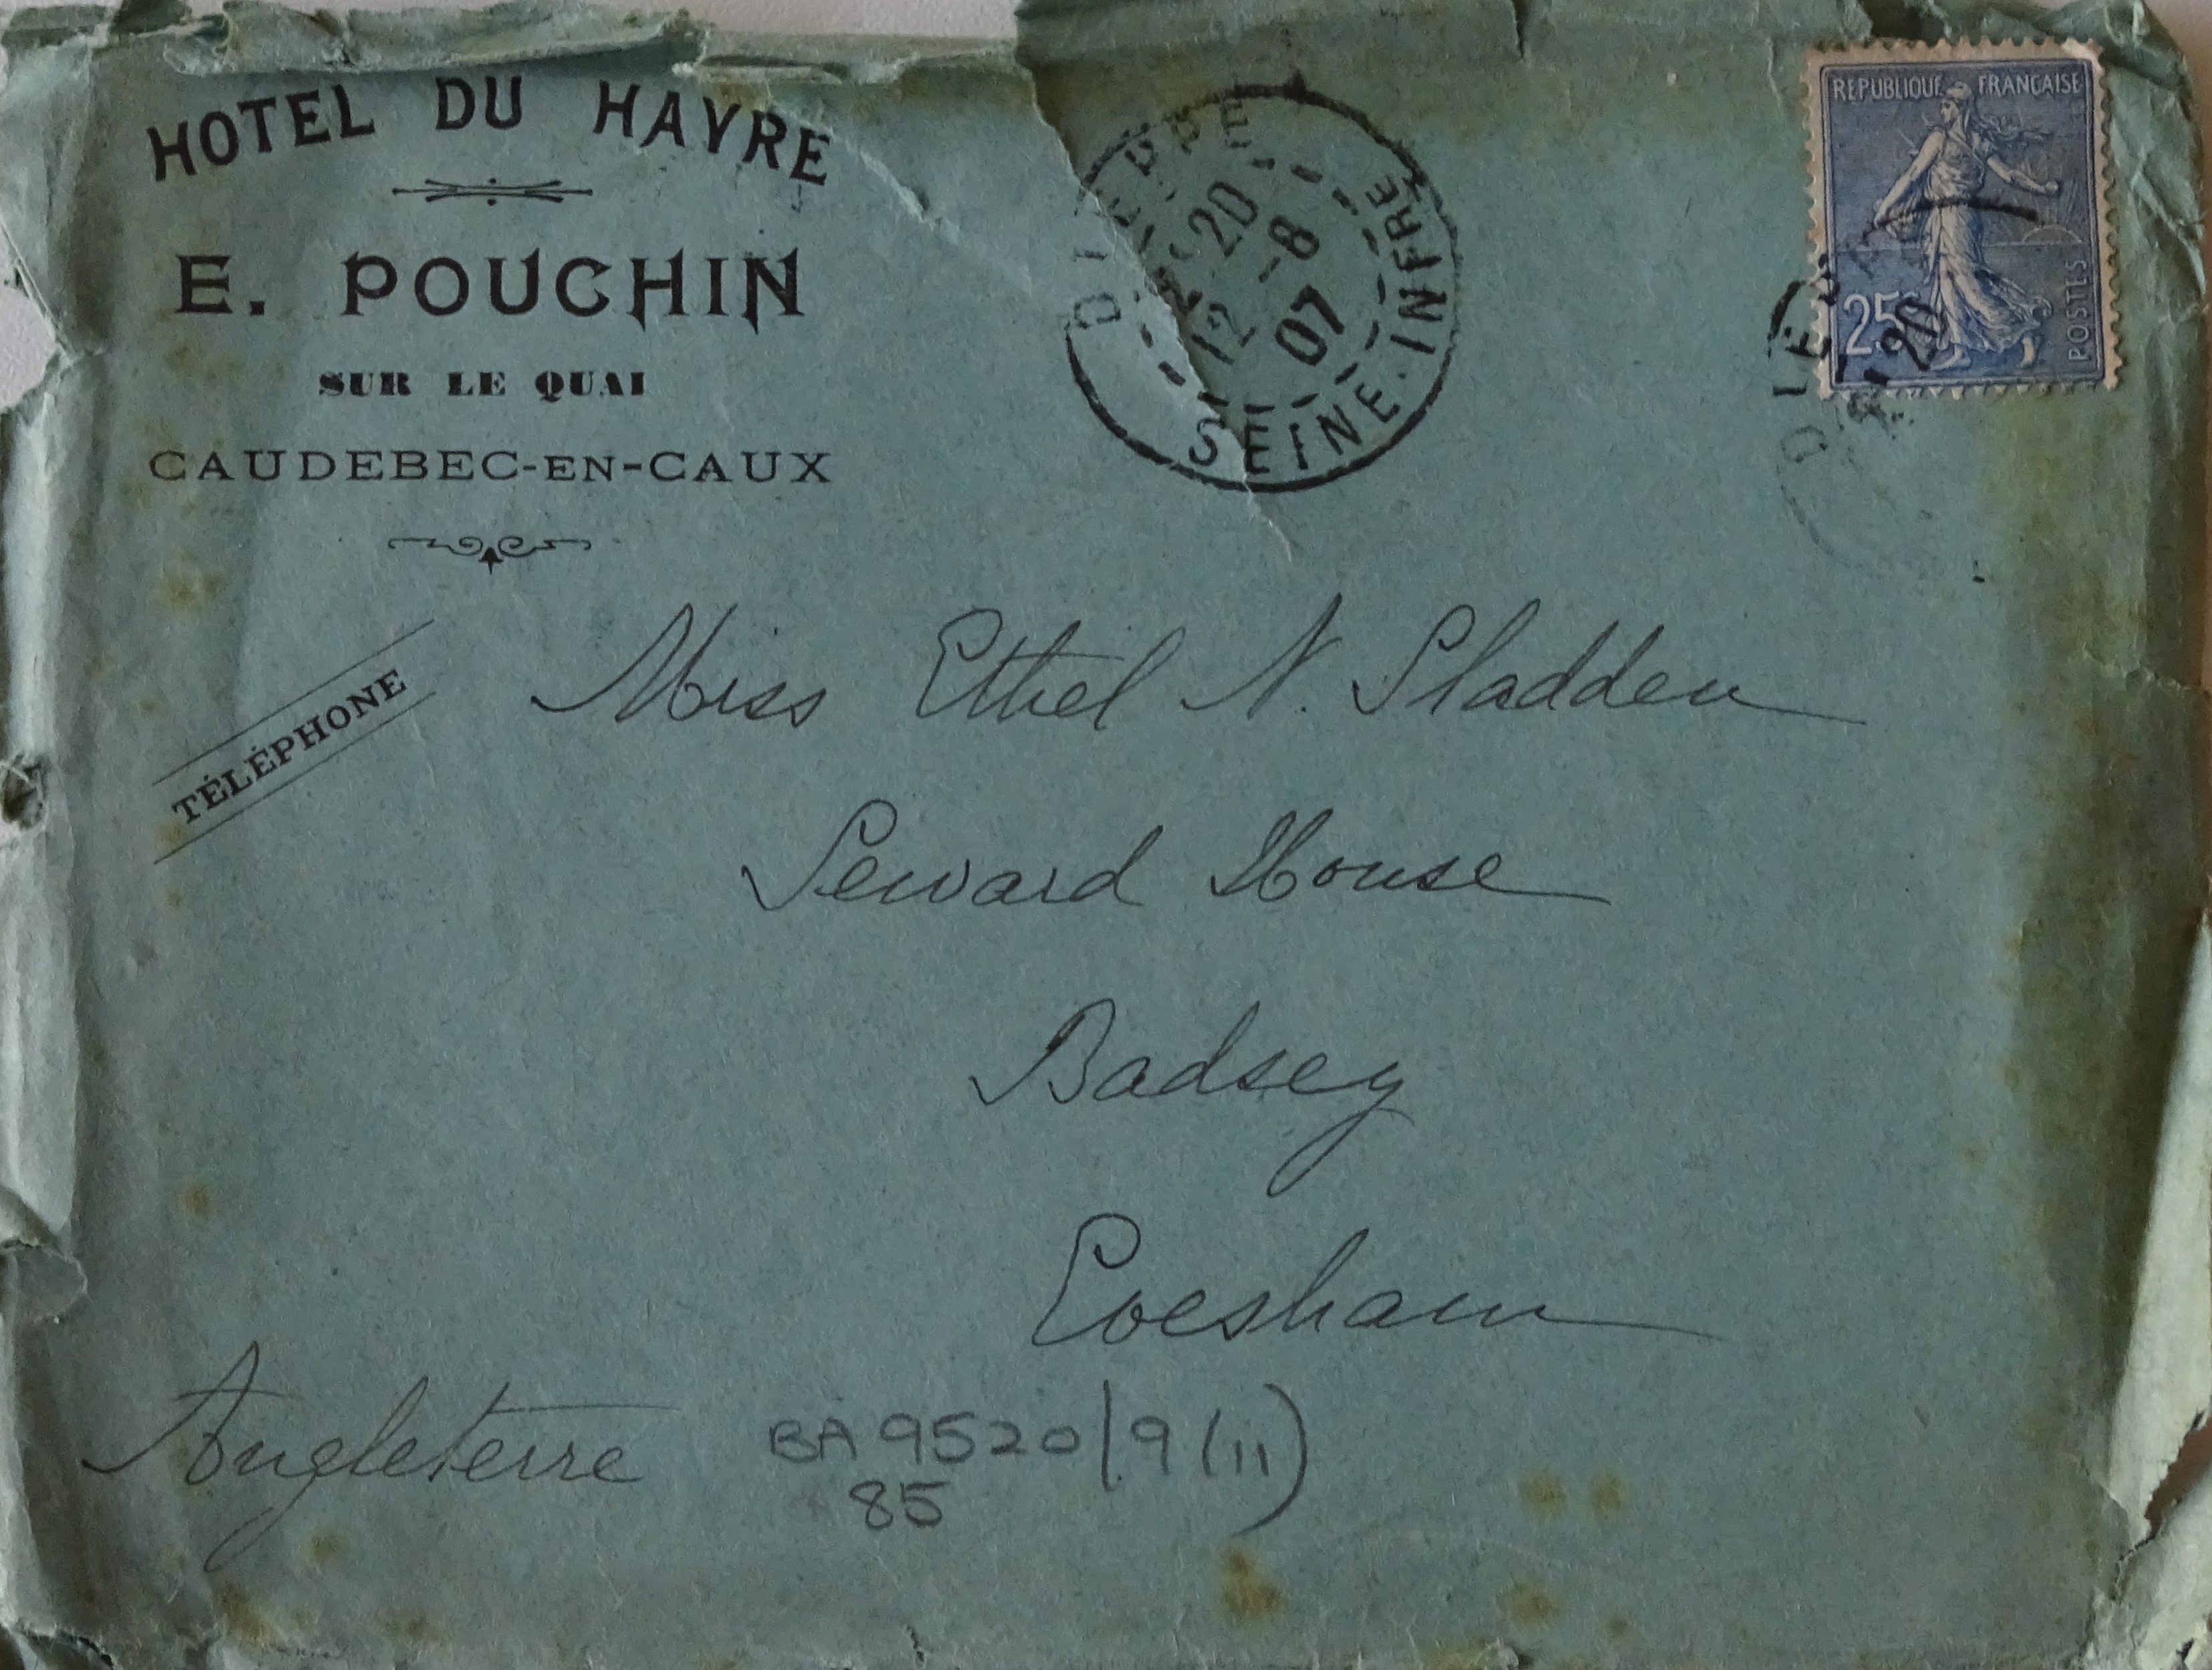 HOTEL DU HAVRE
E. POUCHIN
SUR LE QUAI
CAUDEBEC-EN-CAUX
TÉLÉPHONE
DIEPPE
20
12 -8
07
SEINE-INFRE
REPUBLIQUE FRANÇAISE
25c
POSTES
DIEPPE
20
Miss Ethel N. Sladden
Seward House
Badsey
Evesham
Angleterre
BA 9520/9 (11)
85